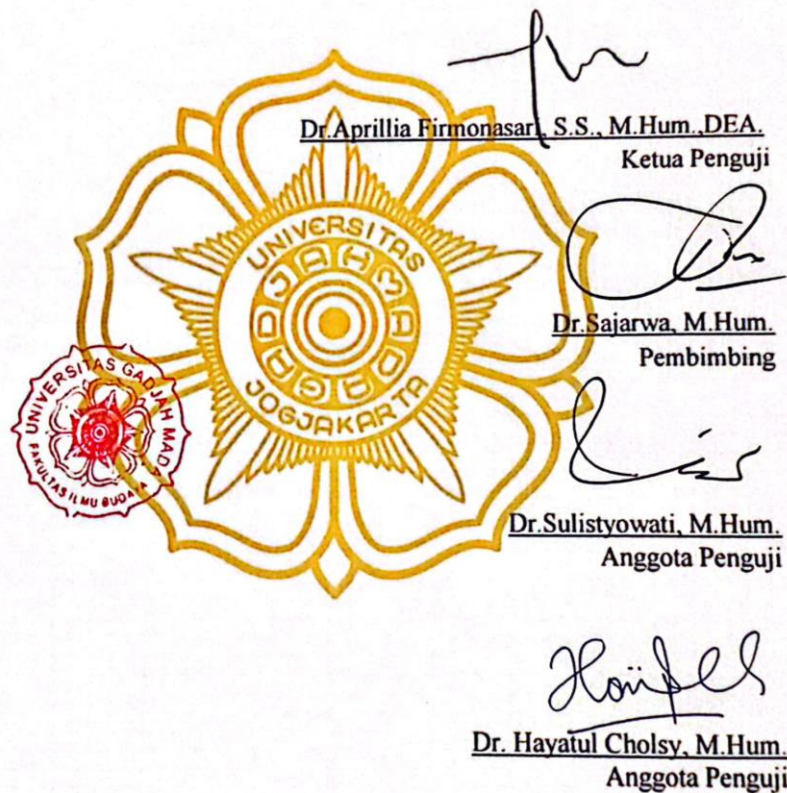 Dr.Aprillia Firmonasari, S.S., M.Hum.,DEA.
Ketua Penguji
UNIVERSITAS
GADJAH MADA
JOGJAKARTA
Dr.Sajarwa, M.Hum.
Pembimbing
UNIVERSITAS GADJAH MADA
FAKULTAS ILMU BUDAYA
Dr.Sulistyowati, M.Hum.
Anggota Penguji
Dr. Hayatul Cholsy, M.Hum.
Anggota Penguji